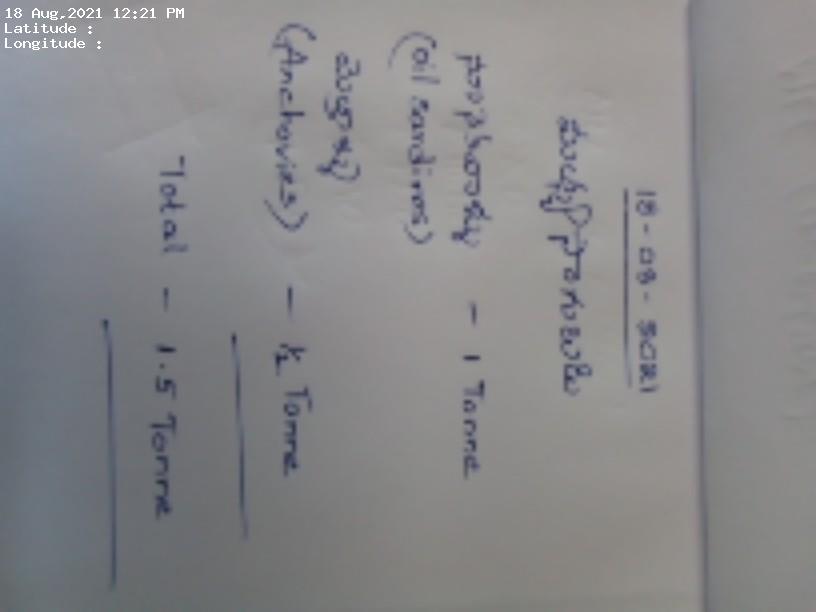 18 Aug,2021 12:21 PM
Latitude :
Longitude :
18-08-2021
- 1 Tonne
(oil sardines)
(Anchovies) - ½ Tonne
Total - 1.5 Tonne